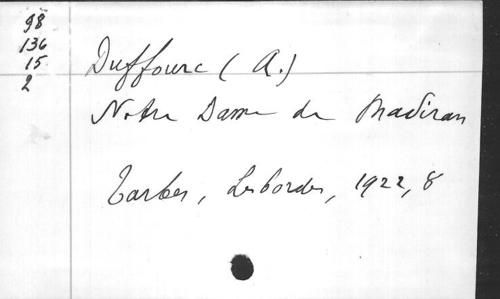 98
136
15
2
Duffourc (A.)
Notre Dame de Madiran
Tarbes, Lesbordes, 1922, 8